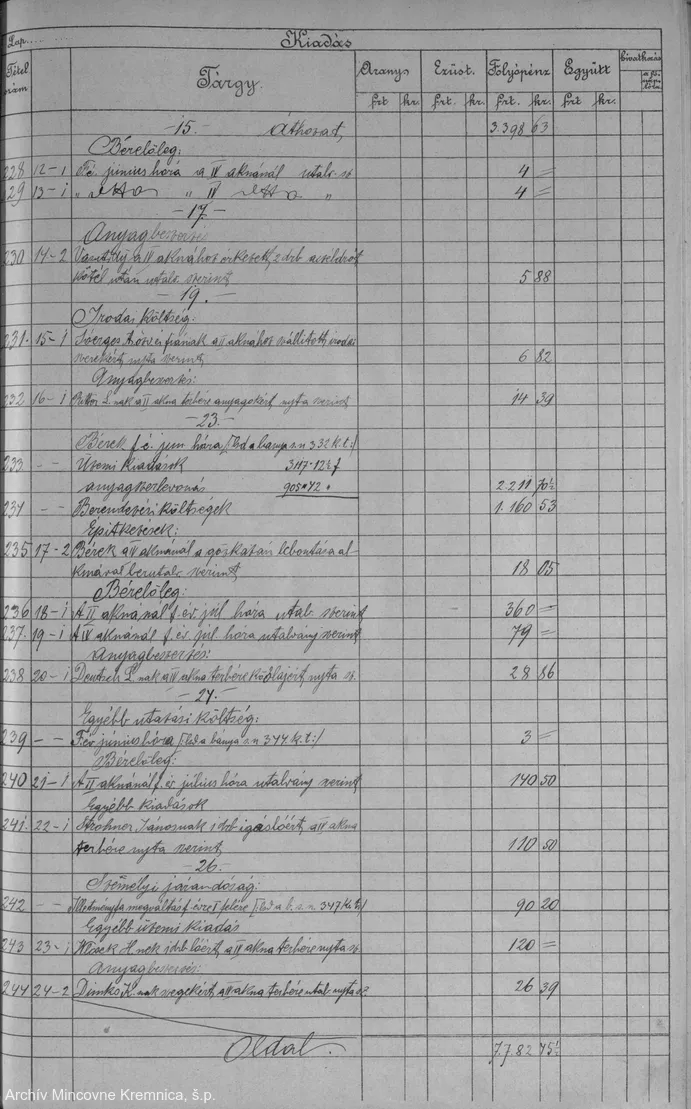 Lap.
Kiadás
Tétel szám
Tárgy.
Arany
Ezüst.
Folyópénz
Együtt
hivatkozás
frt kr. frt. kr. frt. kr. frt. kr.
—15.— Áthozat, 3.398 63
Bérelőleg:
228 12-1 Fé. június hóra a IV aknánál utalv. sz. 4 =
229 13-1 " detto " IV detto " 4 =
—17.—
Anyagbeszerzés
230 14-2 a IV aknához érkezett, 2 drb aczéldrót
kötél után utalv. szerint 5 88
—19.—
Irodai költség:
231. 15-1 a II aknához szállított irodai
szerekért nyta szerint 6 82
Anyagbeszerzés:
232 16-1 L. nak a II akna terhére anyagokért nyta szerint 14 39
—23.—
Bérek f. é. jun hóra /:lsd a bánya s.n 332 k. t:/
233 -- Üzemi kiadások 3117·12½ f
anyagszerlevonás 905·42 " 2.211 70½
234 -- Berendezési költségek 1.160 53
Építkezések:
235 17-2 Bérek a IV aknánál a gőzkazán lebontása al-
kalmával berutalv. szerint 18 05
Bérelőleg:
236 18-1 A II aknánál f. év. júl hóra utalv. szerint 360 =
237. 19-1 A IV aknánál f. év. júl. hóra utalvány szerint 79 =
Anyagbeszerzés:
238 20-1 Deutsch L. nak a IV akna terhére kőolajért nyta sz. 28 86
—24.—
Egyébb utazási költség:
239 -- F. év június hóra /:lsd a bánya s.n 344 k. t:/ 3 =
Bérelőleg:
240 21-1 A II aknánál f. év július hóra utalvány szerint 140 50
Egyébb kiadások
241. 22-1 Strohner Jánosnak 1 drb igáslóért a IV akna
terhére nyta szerint 110 50
—26.—
Személyi járandóság:
242 -- Illetményfa megváltás f. évre I felére /:lsd a b. s. n. 347 k. t:/ 90 20
Egyébb üzemi kiadás
243 23-1 H. nek 1 drb lóért, a IV akna terhére nyta sz. 120 =
Anyagbeszerzés:
244 24-2 K. nak szegekért a IV akna terhére utalv. nyta sz. 26 39
Oldal. 7.782 45½
Archív Mincovne Kremnica, š.p.